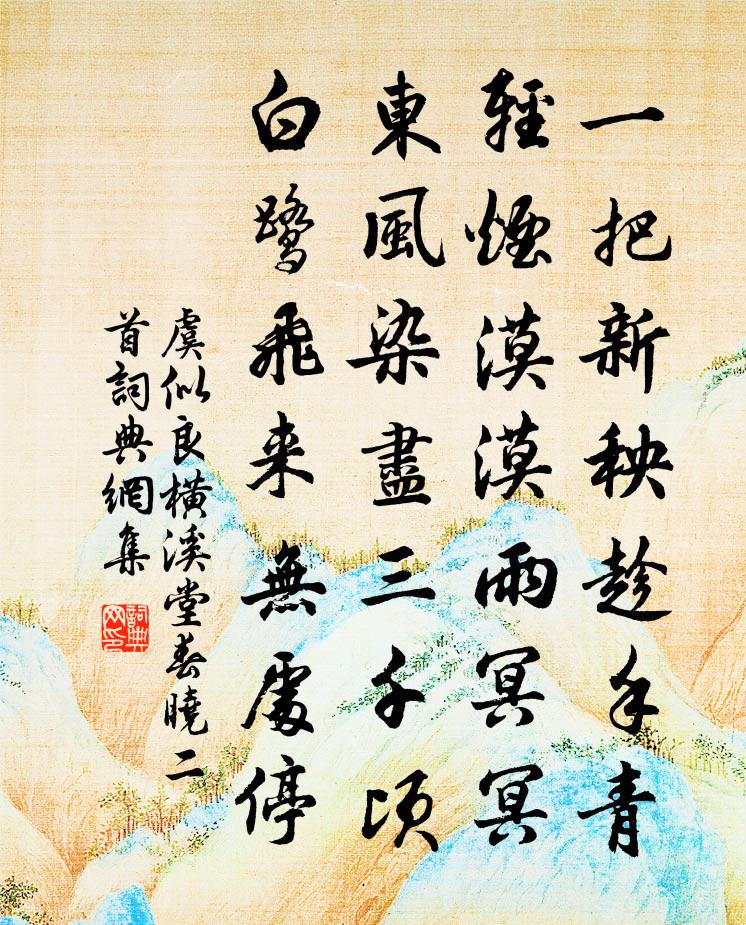 一把新秧趁手青
輕煙漠漠雨冥冥
東風染盡三千頃
白鷺飛来無處停
虞似良橫溪堂春曉二
首詞典網集
詞典
网印